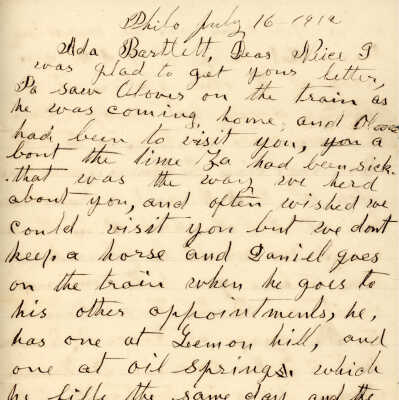 Philo July 16 - 1912
Ada Bartlett, Dear Neice I
was glad to get your letter,
Pa saw Clover on the train as
he was coming home, and
had been to visit you, you a
bout the time Za had been sick.
that was the way we herd
about you, and often wished we
could visit you but we dont
keep a horse and Daniel goes
on the train when he goes to
his other appointments, he,
has one at Lemon hill, and
one at oil springs. which
he fills the same day and the